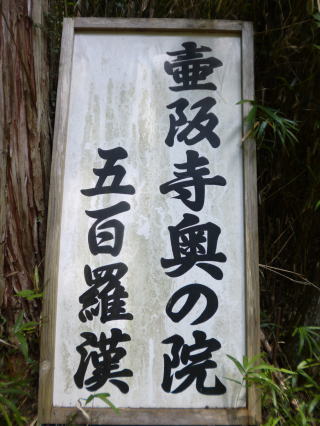 壷阪寺奥の院
五百羅漢